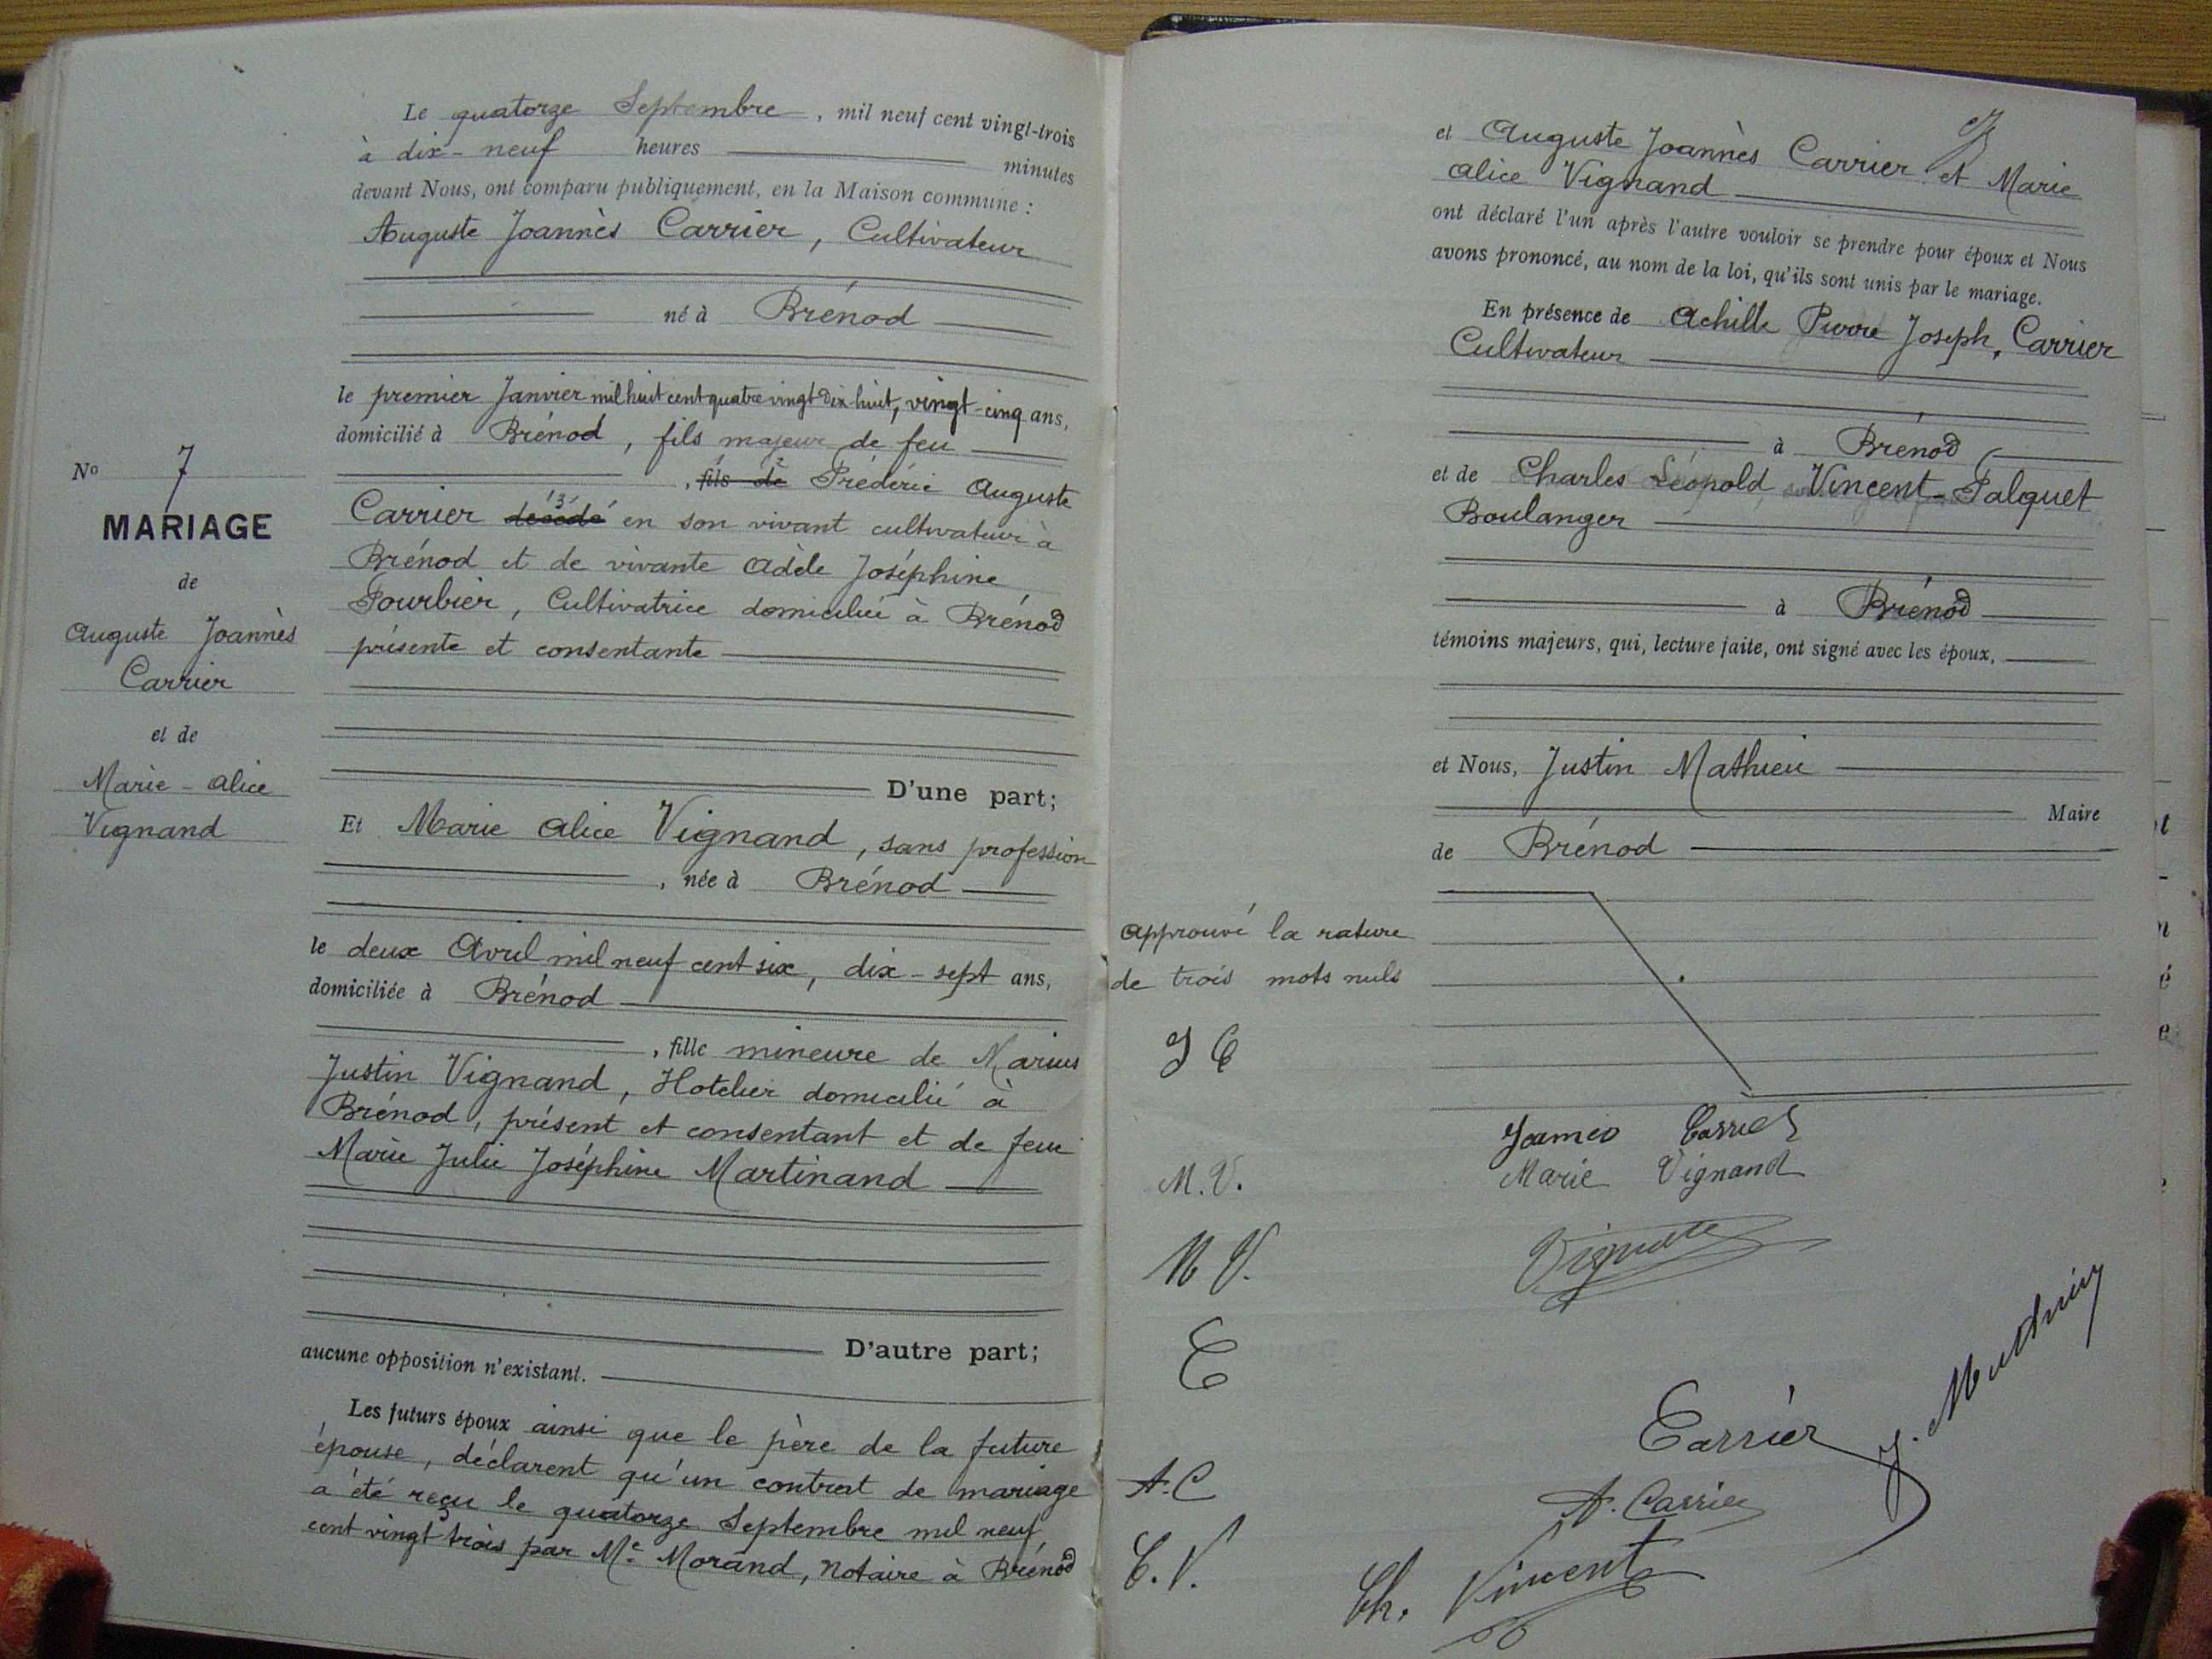 Le quatorze Septembre, mil neuf cent vingt-trois
à dix-neuf heures minutes
devant Nous, ont comparu publiquement, en la Maison commune :
Auguste Joannès Carrier, Cultivateur
né à Brénod
le premier Janvier mil huit cent quatre vingt dix-huit, vingt-cinq ans,
domicilié à Brénod, fils majeur de feu
, fils de Frédéric Auguste
Carrier décédé en son vivant cultivateur à
Brénod et de vivante Adèle Joséphine
Fourbier, Cultivatrice domiciliée à Brénod
présente et consentante
D'une part;
Et Marie Alice Vignand, sans profession
, née à Brénod
le deux Avril mil neuf cent six, dix-sept ans,
domiciliée à Brénod
, fille mineure de Marius
Justin Vignand, Hotelier domicilié à
Brénod, présent et consentant et de feue
Marie Julie Joséphine Martinand
D'autre part;
aucune opposition n'existant.
Les futurs époux ainsi que le père de la future
épouse, déclarent qu'un contrat de mariage
a été reçu le quatorze Septembre mil neuf
cent vingt trois par Me Morand, Notaire à Brénod
No 7
MARIAGE
de
Auguste Joannès
Carrier
et de
Marie-Alice
Vignand
et Auguste Joannès Carrier et Marie
Alice Vignand
ont déclaré l'un après l'autre vouloir se prendre pour époux et Nous
avons prononcé, au nom de la loi, qu'ils sont unis par le mariage.
En présence de Achille Pierre Joseph, Carrier
Cultivateur
à Brénod
et de Charles Léopold Vincent-Falquet
Boulanger
à Brénod
témoins majeurs, qui, lecture faite, ont signé avec les époux,
et Nous, Justin Mathieu
Maire
de Brénod
Approuvé la rature
de trois mots nuls
J C
M. V.
M V.
C
A. C
C. V.
Carrier
Marie Vignand
Carrier
J. Mathieu
A. Carrier
Ch. Vincent